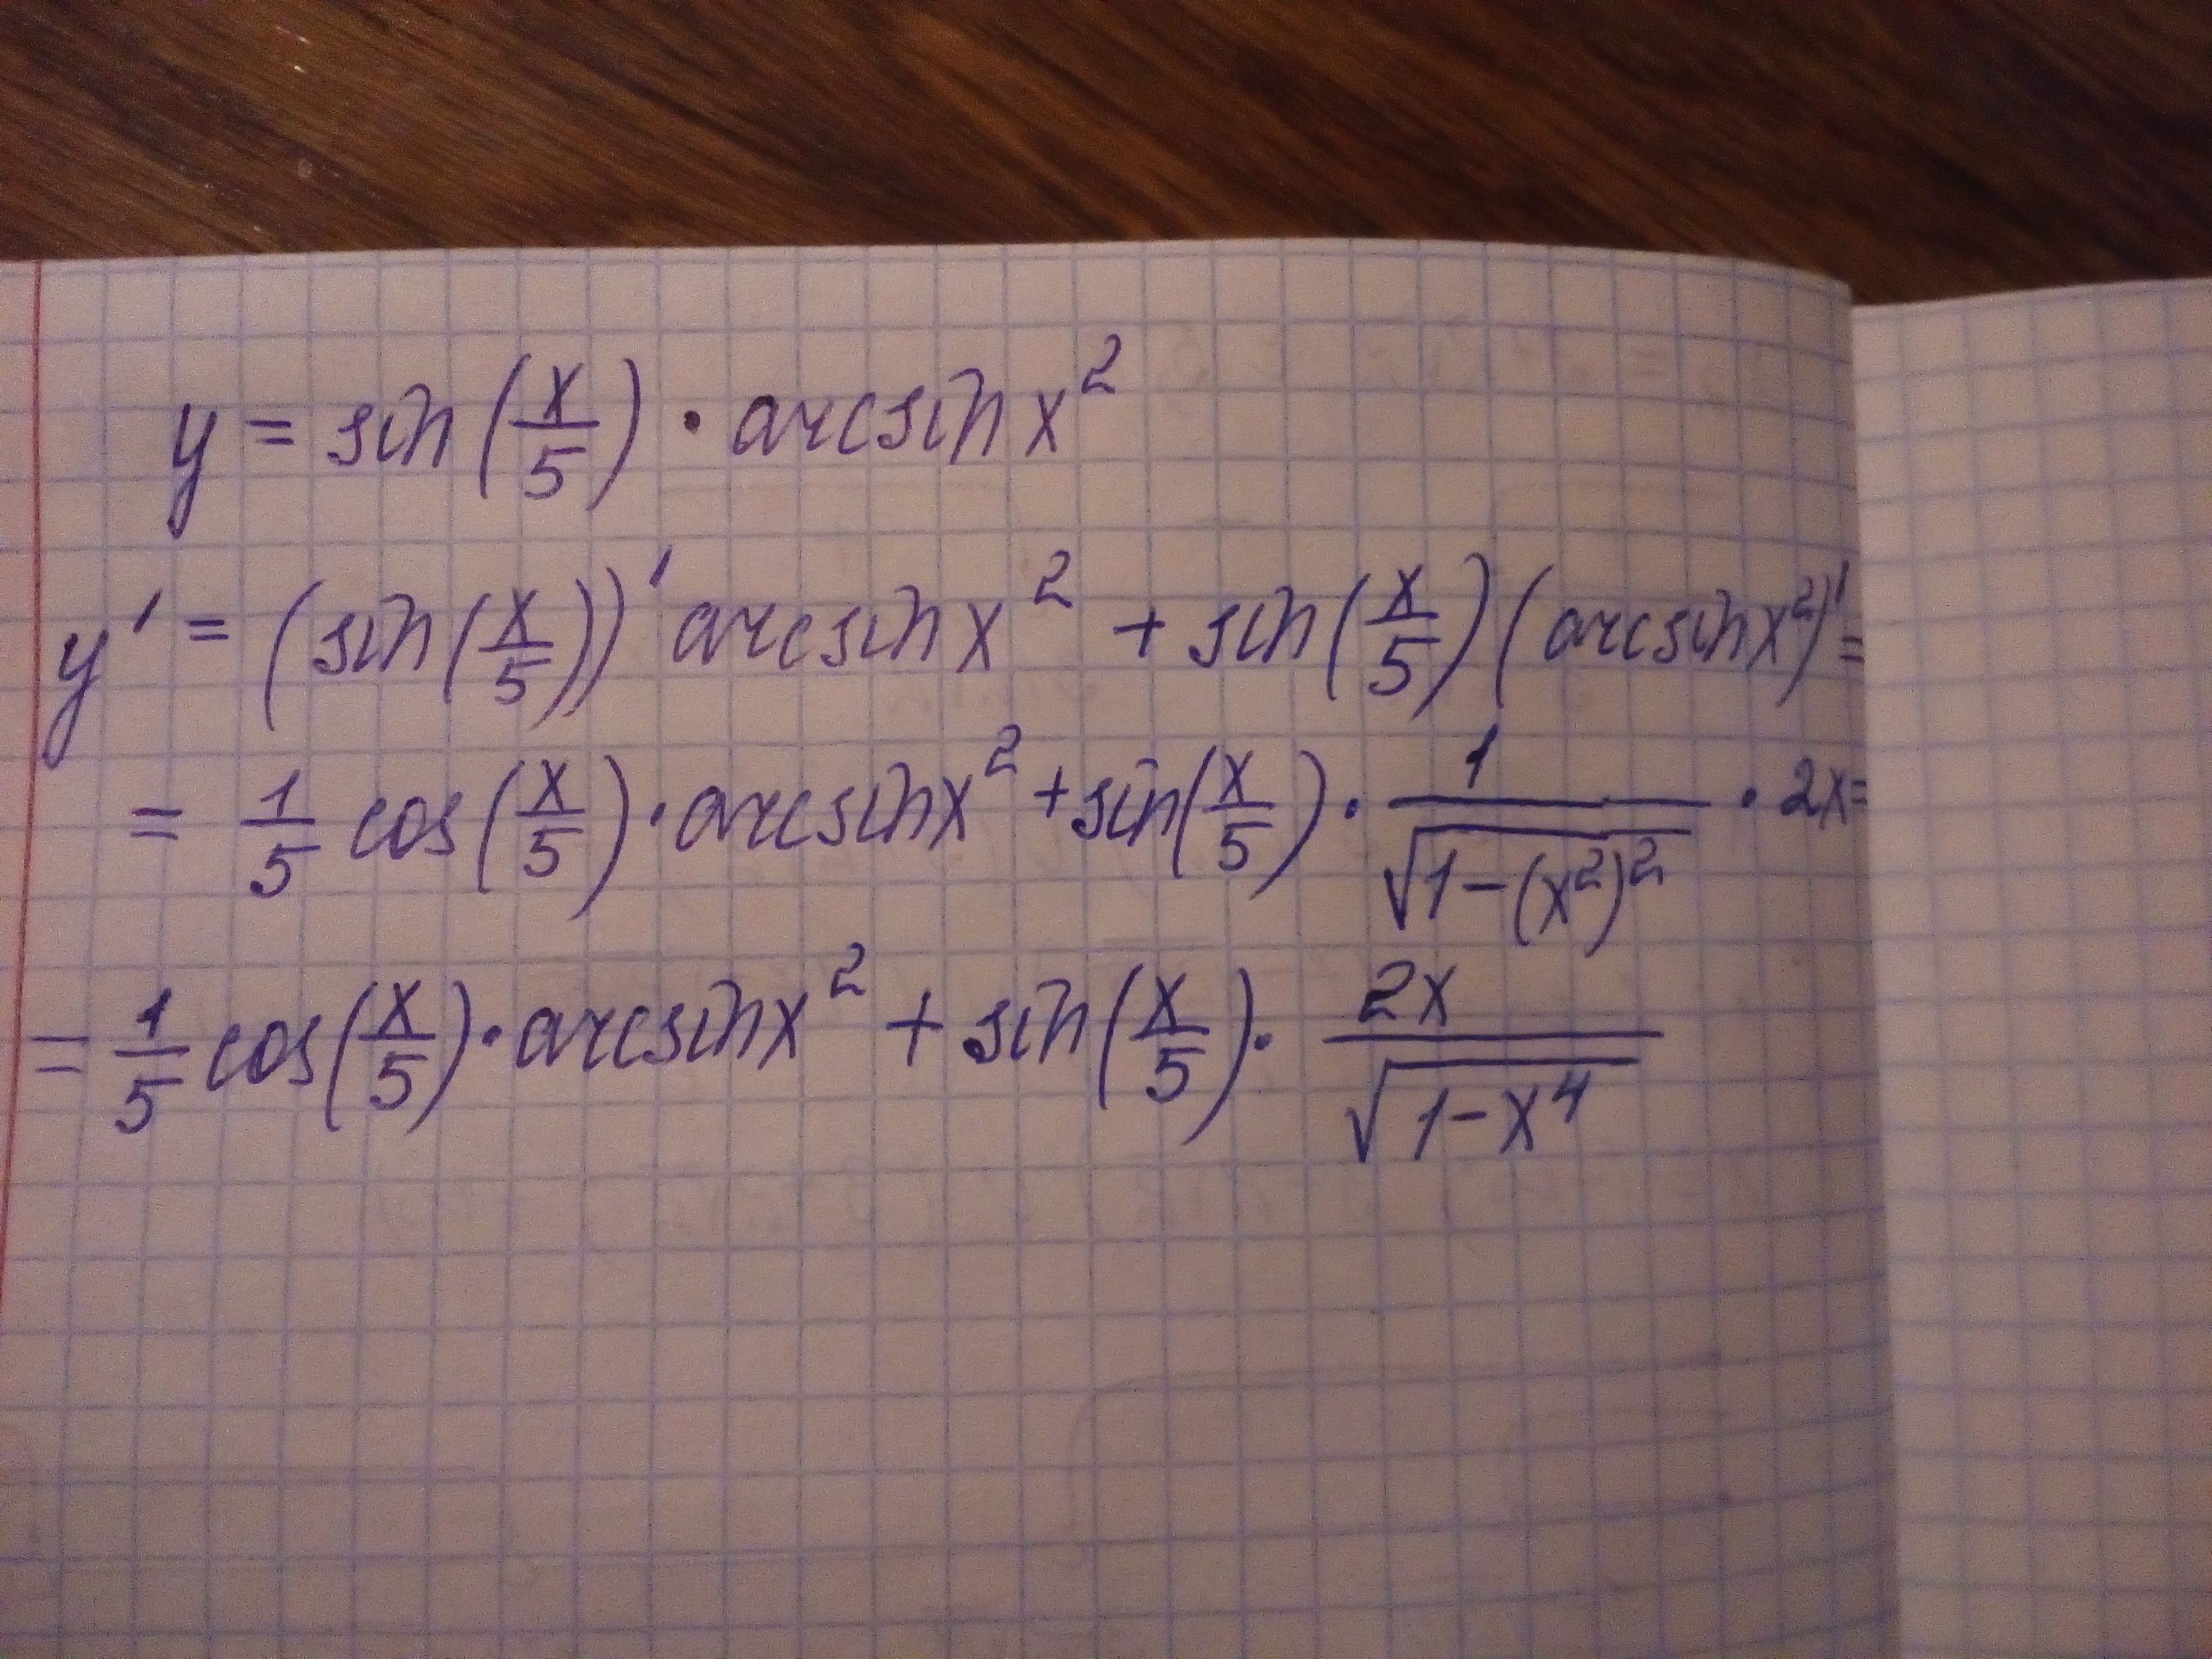 y = sin(x/5) · arcsin x²
y' = (sin(x/5))' arcsin x² + sin(x/5)(arcsin x²)' =
= 1/5 cos(x/5) · arcsin x² + sin(x/5) · 1/√(1-(x²)²) · 2x =
= 1/5 cos(x/5) · arcsin x² + sin(x/5) · 2x/√(1-x⁴)